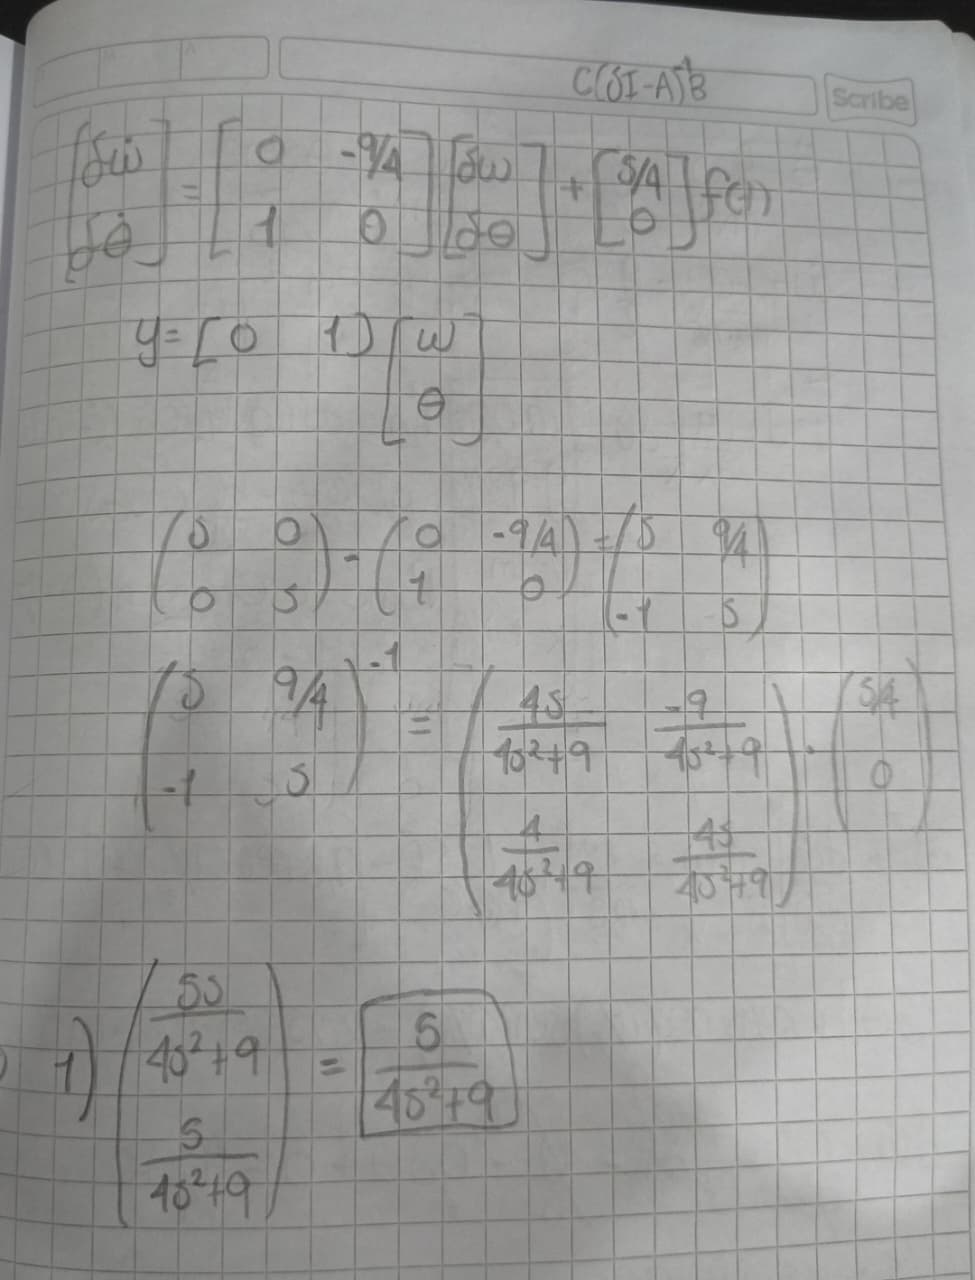 C(SI-A)⁻¹B
Scribe
[δẇ δθ̇] = [0 -9/4; 1 0] [δw δθ] + [5/4 0] f(t)
y = [0 1] [w θ]
(S 0; 0 S) - (0 -9/4; 1 0) = (S 9/4; -1 S)
(S 9/4; -1 S)⁻¹ = (4S/(4S²+9) -9/(4S²+9); 4/(4S²+9) 4S/(4S²+9)) · (5/4 0)
1) (5S/(4S²+9) 5/(4S²+9)) = 5/(4S²+9)